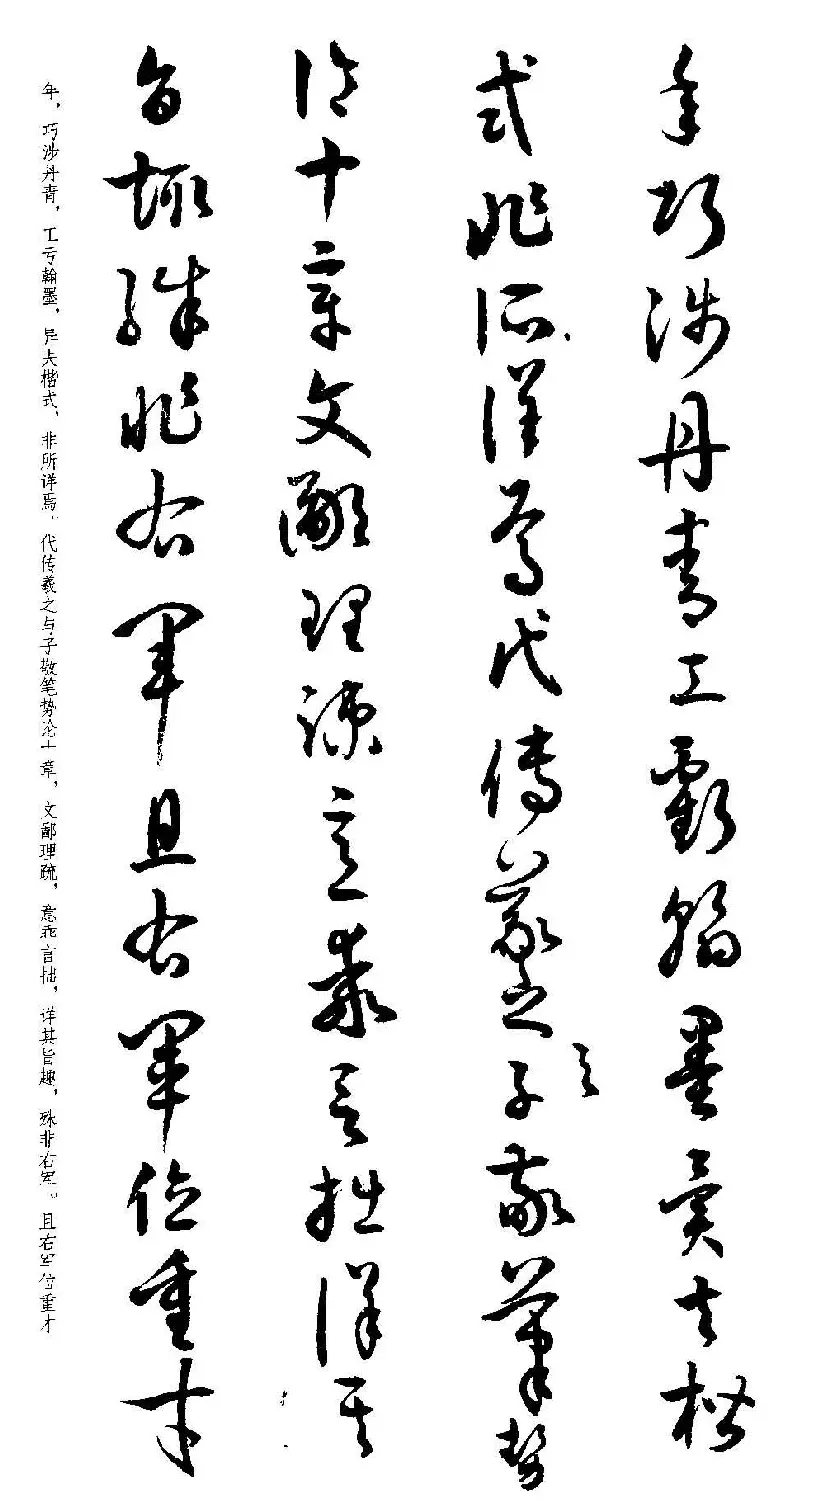 年巧涉丹青工虧翰墨異夫楷
式非所詳焉代傳羲之與子敬筆勢
論十章文鄙理疎意乖言拙詳其
旨趣殊非右軍且右軍位重才
年，巧涉丹青，工亏翰墨，异夫楷式，非所详焉。代传羲之与子敬笔势论十章，文鄙理疏，意乖言拙，详其旨趣，殊非右军。且右军位重才